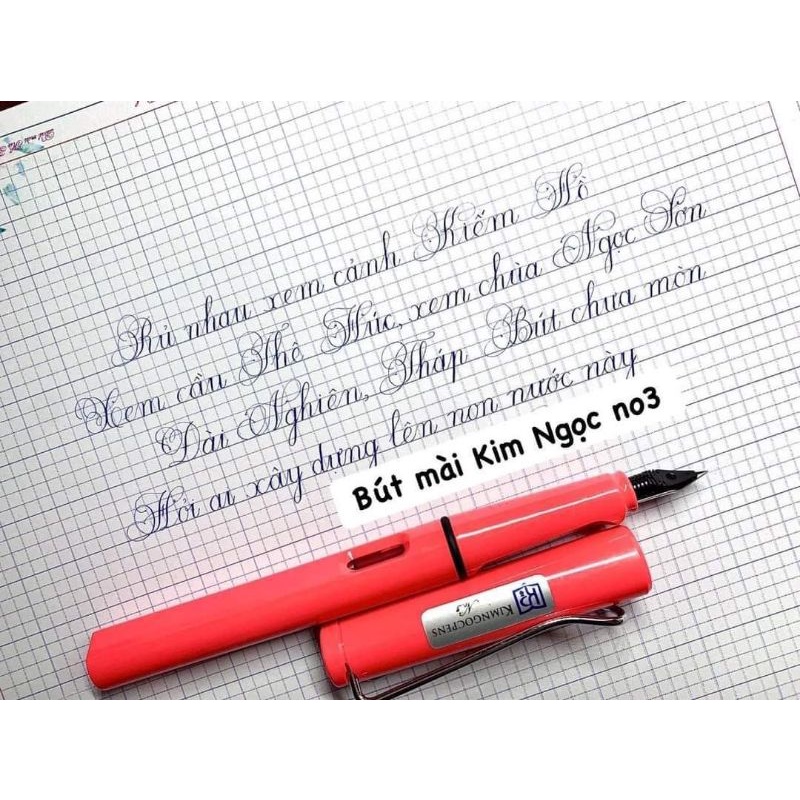 Rủ nhau xem cảnh Kiếm Hồ
Xem cầu Thê Húc, xem chùa Ngọc Sơn
Đài Nghiên, Tháp Bút chưa mòn
Hỏi ai xây dựng lên non nước này
Bút mài Kim Ngọc no3
KIMNGOCPENS
N3